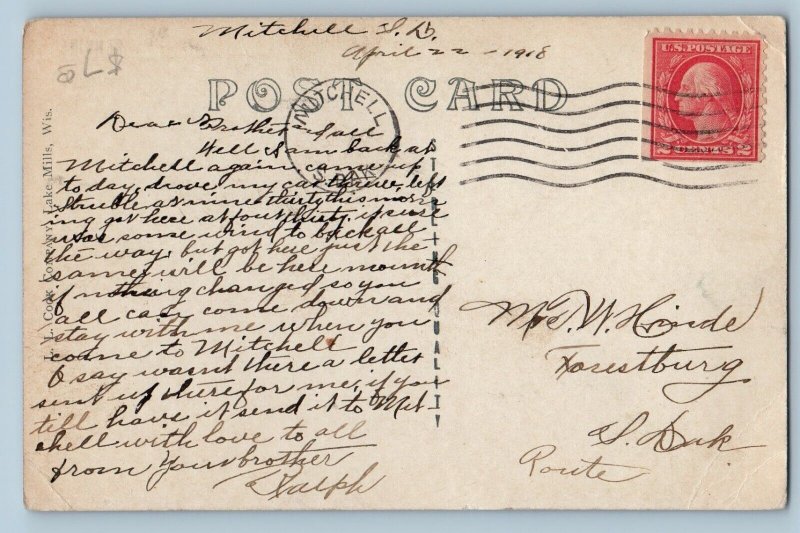 Mitchell S. D.
April 22 - 1918
$7⁰⁰
POST CARD
MITCHELL
S. DAK.
U.S. POSTAGE
2 CENTS 2
Dear Brother & all
Well I am back at
Mitchell again came up
to day, drove my car threw, left
Struble at nine thirty this morn-
ing got here at four thirty, it sure
was some wind to buck all
the way, but got here just the
same will be here month
if nothing changed, so you
all can come down and
stay with me when you
come to Mitchell
O say wasnt there a letter
sent up there for me, if you
till have it send it to Mit-
chell with love to all
from Your brother
Ralph
STERLING QUALITY
L. L. Cook Company, Lake Mills, Wis.
W. Hinde
Forestburg
S. Dak
Route